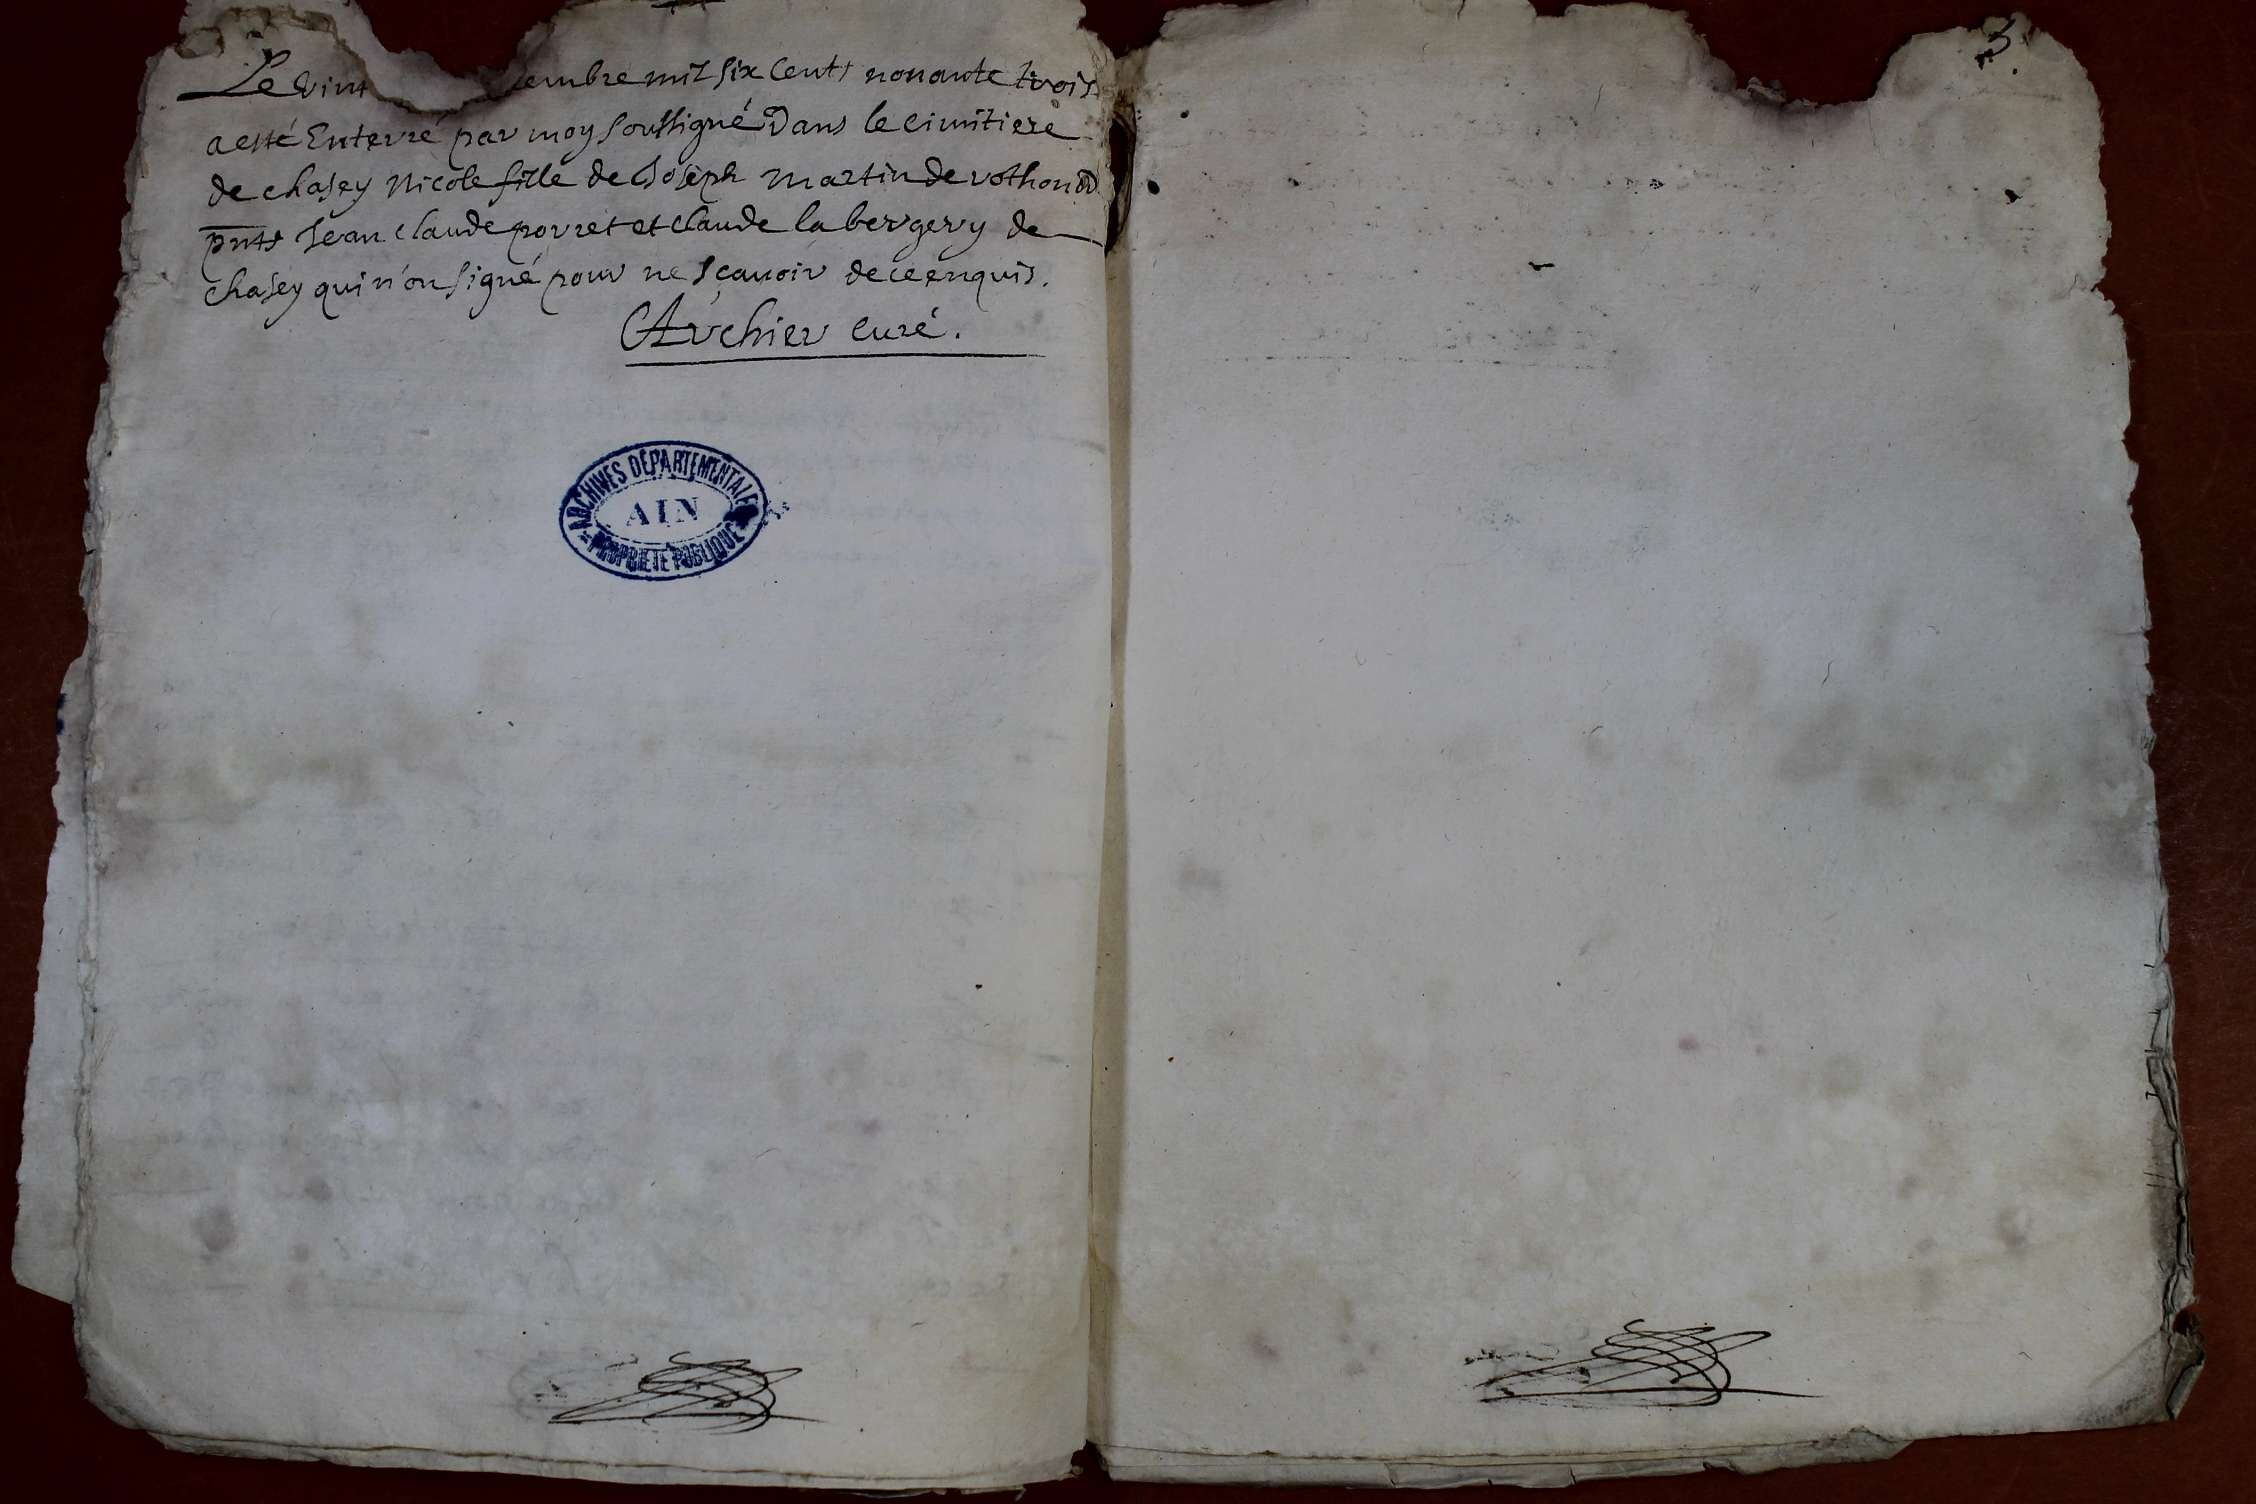 Le vint embre mil six cents nonante trois
a esté Enterré par moy soussigné Dans le cimitiere
de chasey Nicole fille de Joseph Martin de rothonod
pnts Jean Claude porret et Claude la bergery de
chasey qui n'on signé pour ne sçauoir de ce enquis.
Archier curé.
ARCHIVES DÉPARTEMENTALES
AIN
PROPRIÉTÉ PUBLIQUE
3